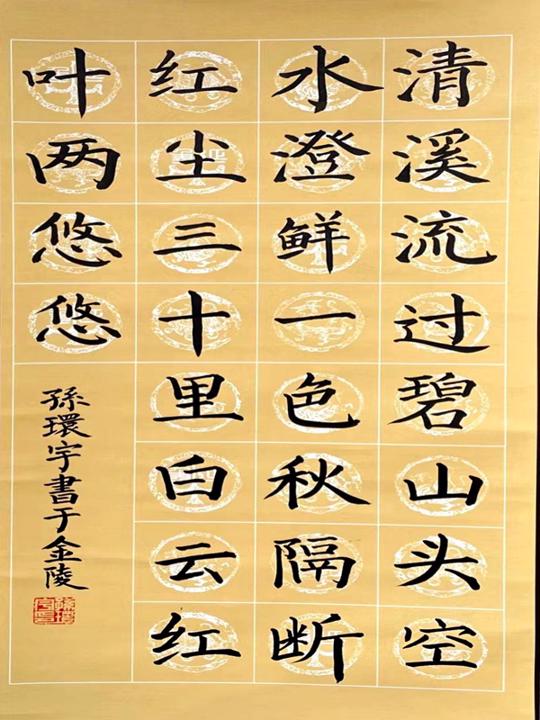 清溪流过碧山头空
水澄鲜一色秋隔断
红尘三十里白云红
叶两悠悠
孫環宇書于金陵